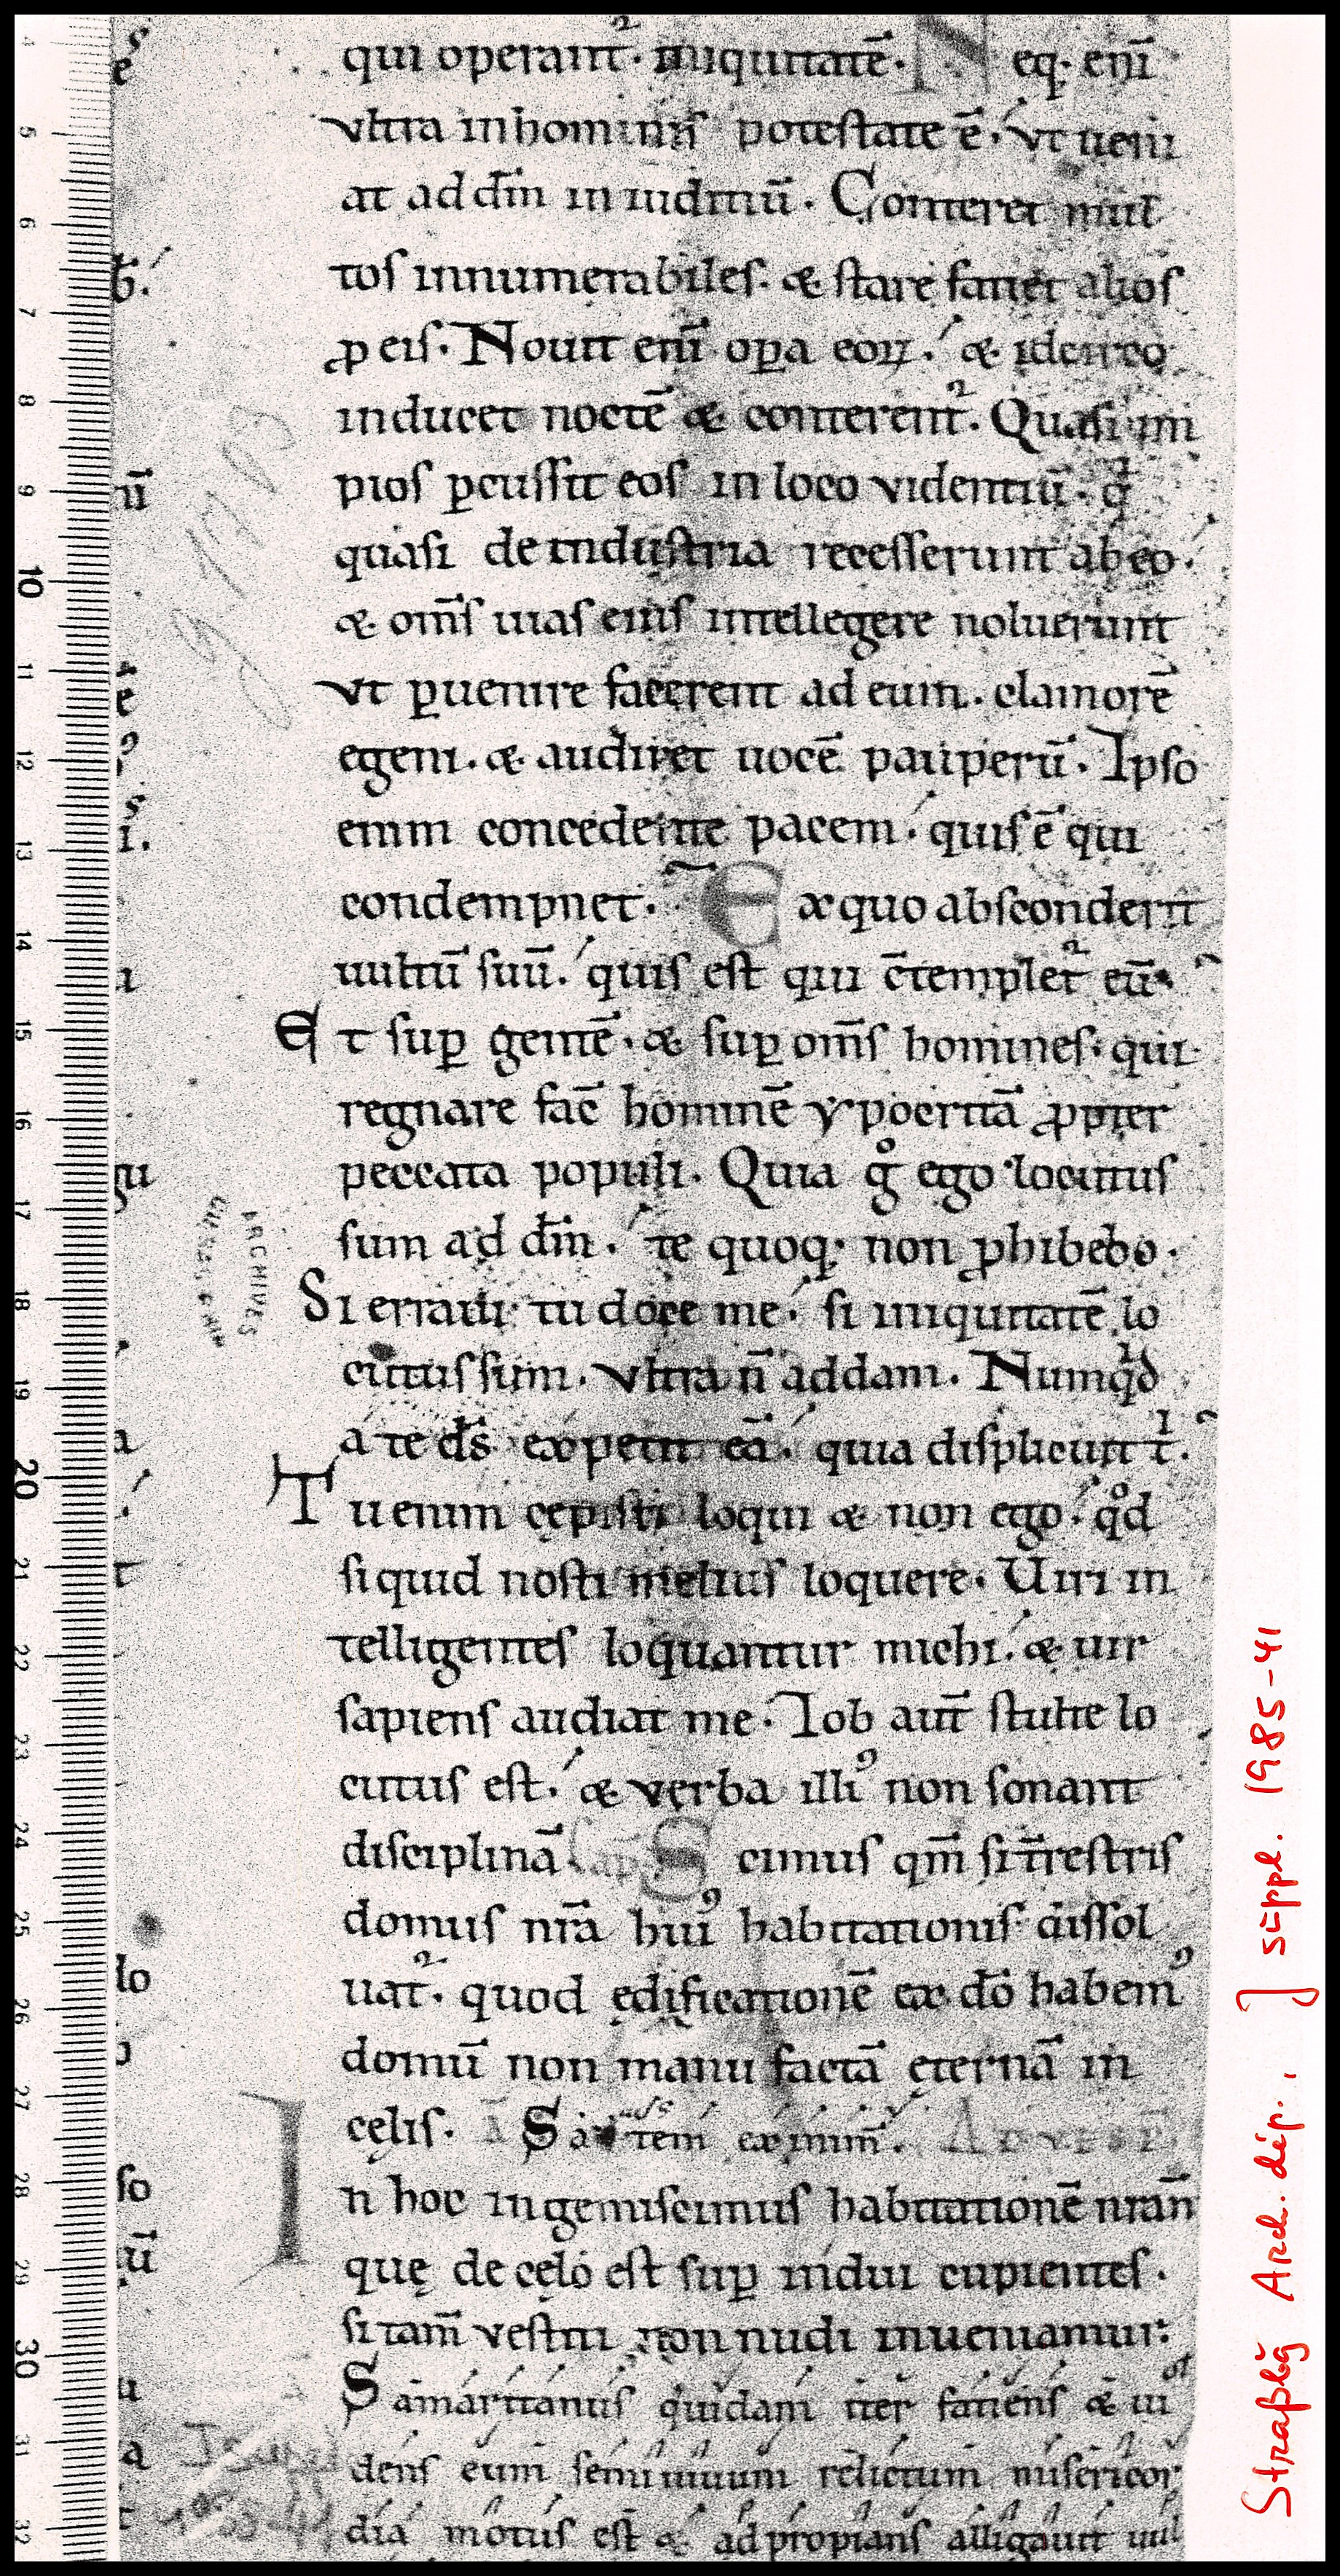 qui operant᷑. iniquitatē. Neq; eni̅
vltra in hominis potestate ē. vt ueni
at ad dn̅m in iuditiu̅. Conteret mul
tos innumerabiles. & stare faciet alios
ꝓ eis. Nouit eni̅ oꝑa eoꝝ. & idcirco
inducet noctē & conterent᷑. Quasi im
pios ꝑcussit eos in loco videntiu̅. qͥ
quasi de industria recesserunt ab eo.
& om̅s uias eius intellegere noluerunt
vt ꝑuenire facerent ad eum. clamorē
egeni. & audiret uocē pauperu̅. Ipso
enim concedente pacem. quis ē qui
condempnet. Ex quo absconderit
uultu̅ suu̅. quis est qui c̅templet᷑ eu̅.
Et suꝑ gentē. & suꝑ om̅s homines. qui
regnare fac̅ hominē ypocritā ꝓpter
peccata populi. Quia gͦ ego locutus
sum ad dn̅m. te quoq; non ꝓhibebo.
Si erraui tu doce me. si iniquitatē lo
cutus sum. vltra n̅ addam. Numqͥd
a te ds̅ expetit eā. quia displicuit tͥ.
Tu enim cepisti loqui & non ego. qͦd
si quid nosti melius loquere. Uiri in
telligentes loquantur michi. & uir
sapiens audiat me. Iob aut̅ stulte lo
cutus est. & verba illiꝰ non sonant
disciplinā Cap̅ Scimus qm̅ si t̅restris
domus nr̅a huiꝰ habitationis dissol
uat᷑. quod ędificationē ex dō habemꝰ
domu̅ non manu factā ęternā in
cęlis.
In hoc ingemiscimus habitationē nr̅am
quę de cęlo est suꝑ indui cupientes.
si tam̅ vestiti non nudi inueniamur.
Samaritanus quidam iter faciens & ui
dens eum semiuiuum relictum misericor
dia motus est & adpropians alligauit uul
4
5
6
7
8
9
10
11
12
13
14
15
16
17
18
19
20
21
22
23
24
25
26
27
28
29
30
31
32
ARCHIVES
Straßbg Arch. dép., J suppl. 1985-41